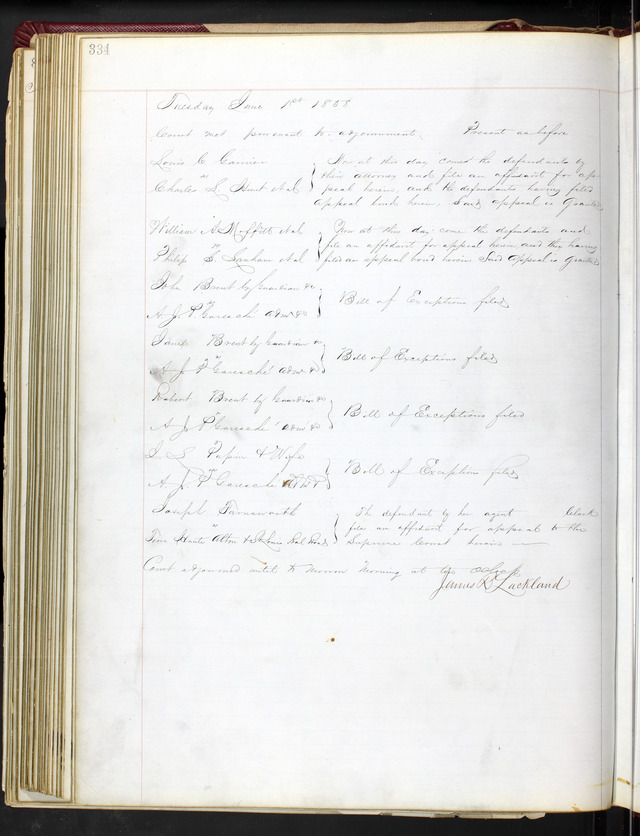 334
Tuesday June 1st 1858
Court met pursuant to adjournment. Present as before
Louis C Garnier
vs
Charles L Hunt et al
Now at this day comes the defendants by
their attorney and file an affidavit for ap-
peal herein, and the defendants having filed
appeal bond herein, Said appeal is Granted
William A Moffitt et al
vs
Philip Lanham et al
Now at this day come the defendants and
file an affidavit for appeal herein and the having
filed an appeal bond herein Said Appeal is Granted
John Brent by Guardian &c
vs
A. J. P Garesché Adm &c
Bill of Exceptions filed
James Brent by Guardian &c
vs
A J P Garesché Adm &c
Bill of Exceptions filed
Robert Brent by Guardian &c
vs
A J P Garesché Adm &c
Bill of Exceptions filed
Papin & Wife
vs
A. J. P Garesche Adm
Bill of Exceptions filed
Joseph Farnsworth
vs
Terre Haute Alton & St Louis Rail Road
The defendant by her agent Clark
file an affidavit for appeal to the
Supreme Court herein
Court adjourned until to morrow Morning at ten oClock
James R Lackland